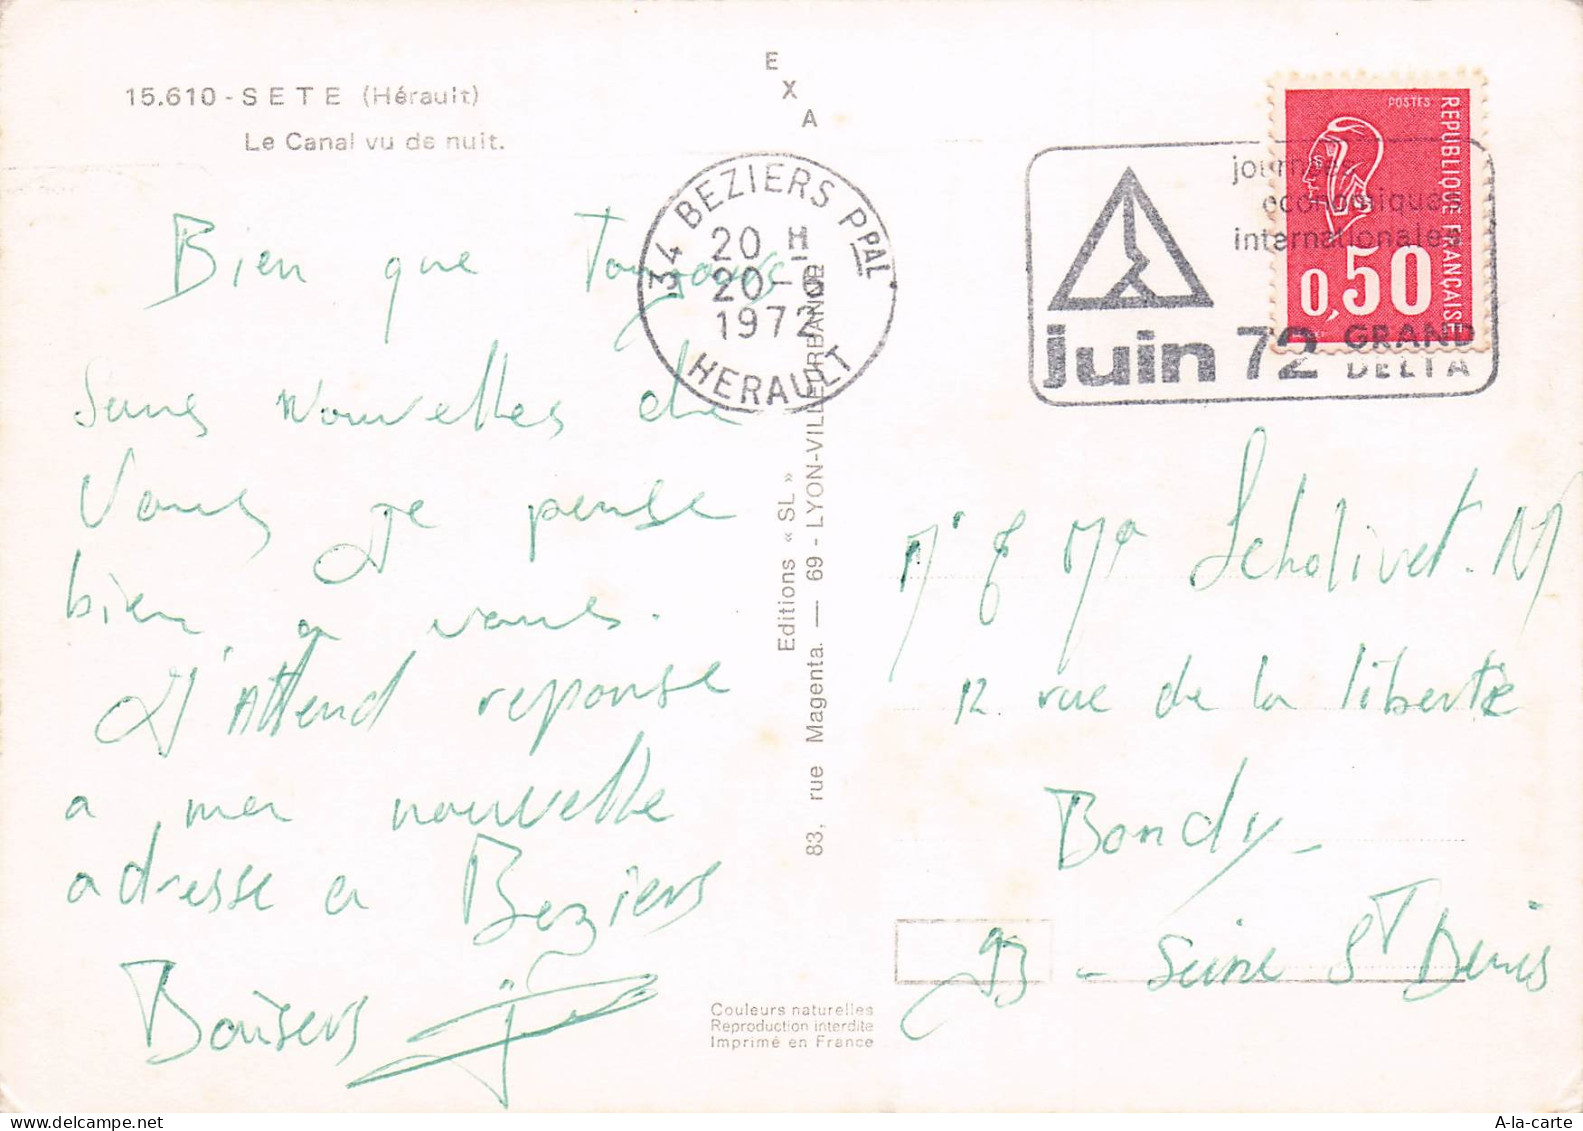 15.610 - SETE (Hérault)
Le Canal vu de nuit.
E
X
A
34 BEZIERS PPAL
20 H
20-
1972
HERAULT
journées
économiques
internationales
juin 72 GRAND
DELTA
POSTES
REPUBLIQUE FRANÇAISE
0,50
Bien que Toujours
Sans Nouvelles de
Vous Je pense
bien a vous.
J'Attend reponse
a ma nouvelle
adresse a Beziers
Baisers
Editions « SL »
83, rue Magenta. — 69 - LYON-VILLEURBANNE
Couleurs naturelles
Reproduction interdite
Imprimé en France
Mr & Me Scholivet. M
12 rue de la liberte
Bondy -
93 - Seine St Denis
A-la-carte